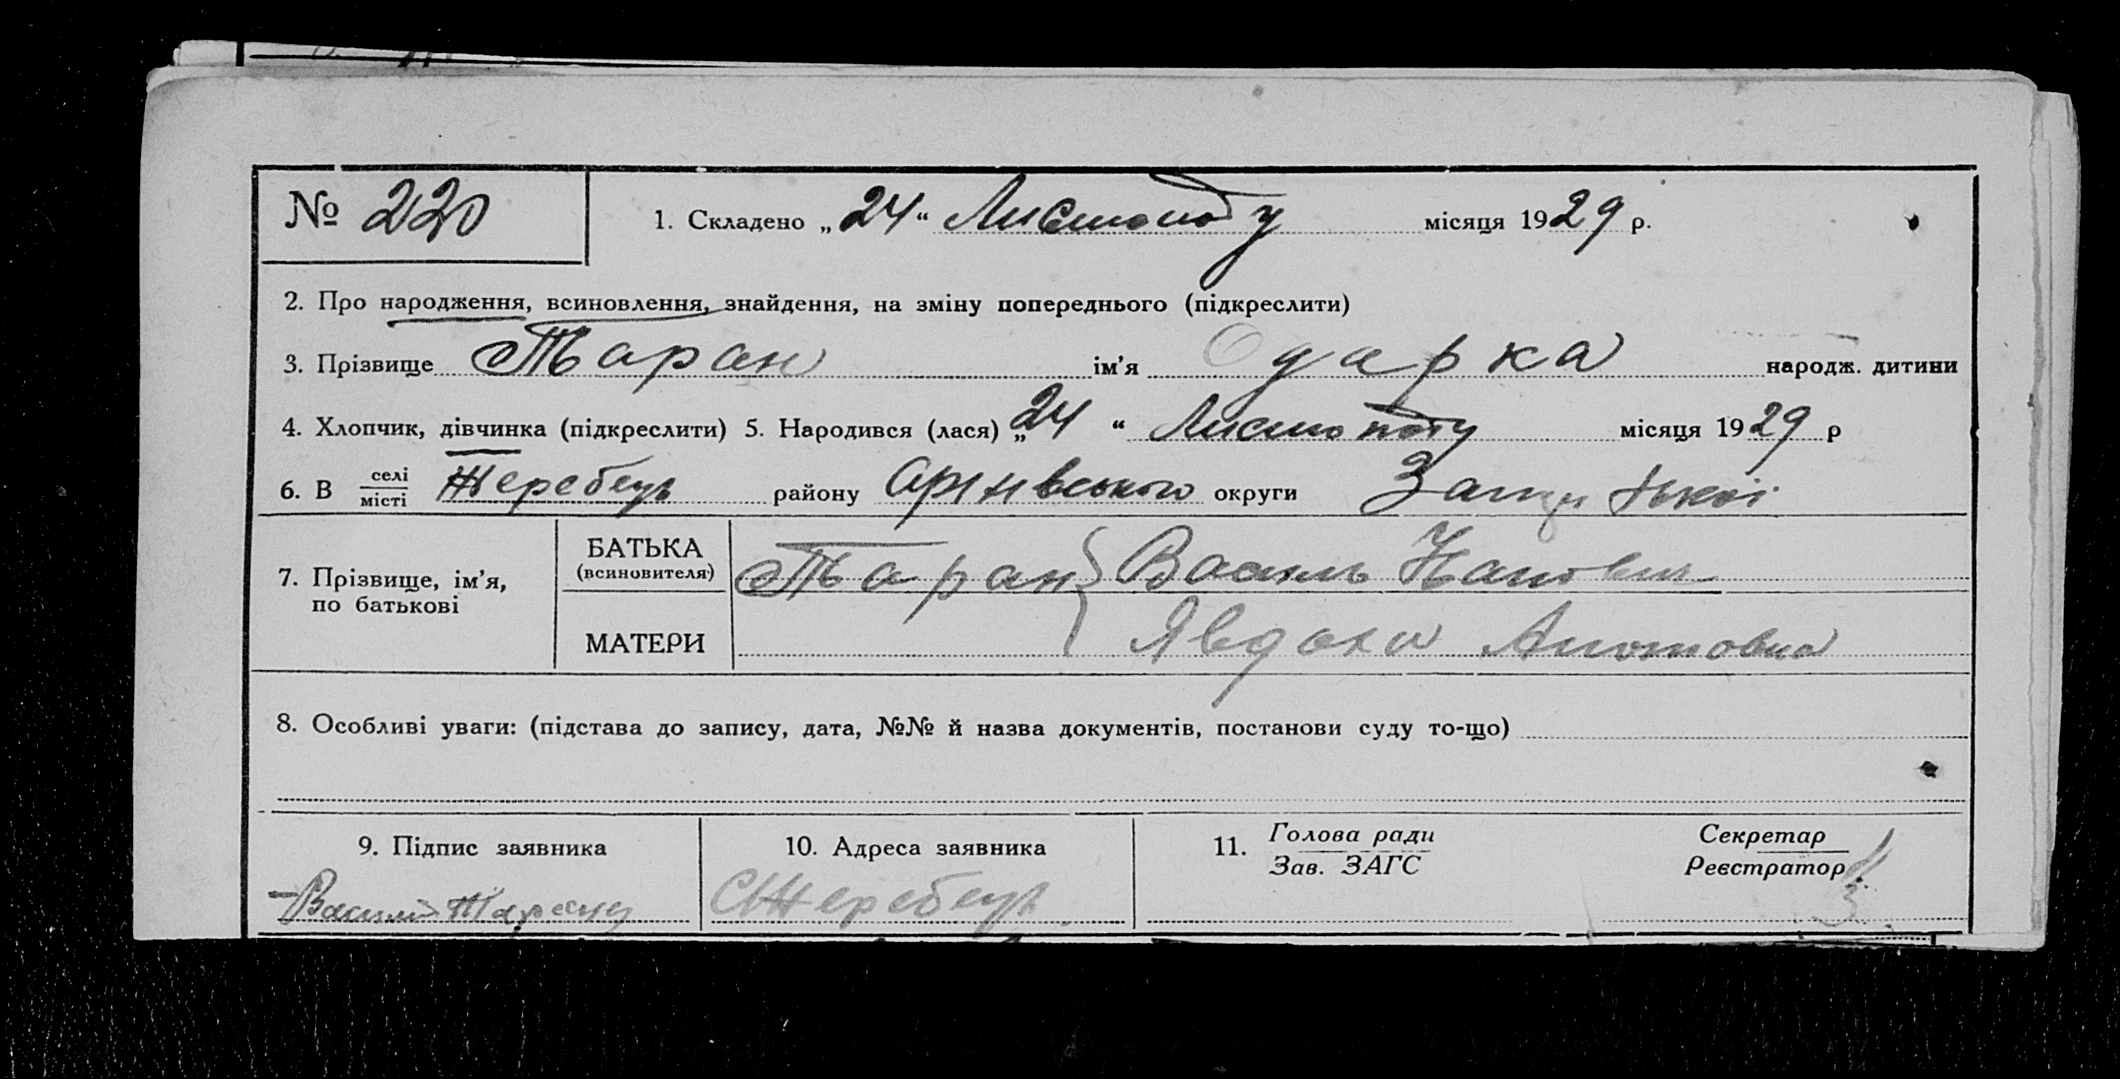 № 220
1. Складено „24“ Листопаду місяця 1929 р.
2. Про народження, всиновлення, знайдення, на зміну попереднього (підкреслити)
3. Прізвище Таран ім'я Одарка народж. дитини
4. Хлопчик, дівчинка (підкреслити) 5. Народився (лася) „24“ Листопаду місяця 1929 р
6. В селі
місті Жеребець району округи
7. Прізвище, ім'я,
по батькові
БАТЬКА
(всиновителя)
Таран Василь
МАТЕРИ
Явдоха
8. Особливі уваги: (підстава до запису, дата, №№ й назва документів, постанови суду то-що)
9. Підпис заявника
10. Адреса заявника
С Жеребець
11. Голова ради
Зав. ЗАГС
Секретар
Реєстратор